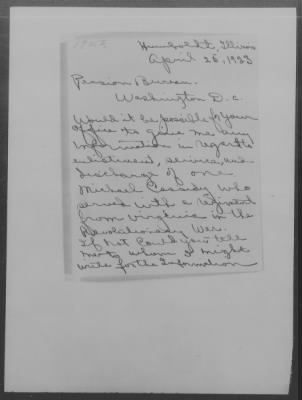 Humboldt, Illinois
April 26, 1933
Pension Bureau.
Washington D.C.
Would it be possible for your
office to give me any
information in regard to
enlistment, service, and
discharge of one
Michael Cassidy who
served with a regiment
from Virginia in the
Revolutionary War.
If Not Could you tell
me to whom I might
write for the Information